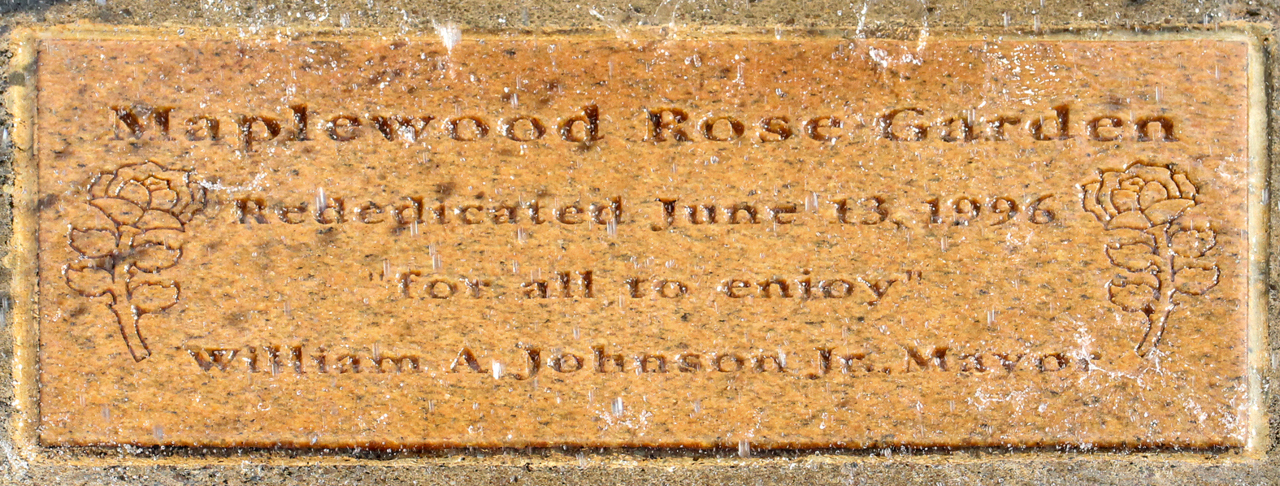 Maplewood Rose Garden
Rededicated June 13, 1996
"for all to enjoy"
William A. Johnson Jr. Mayor